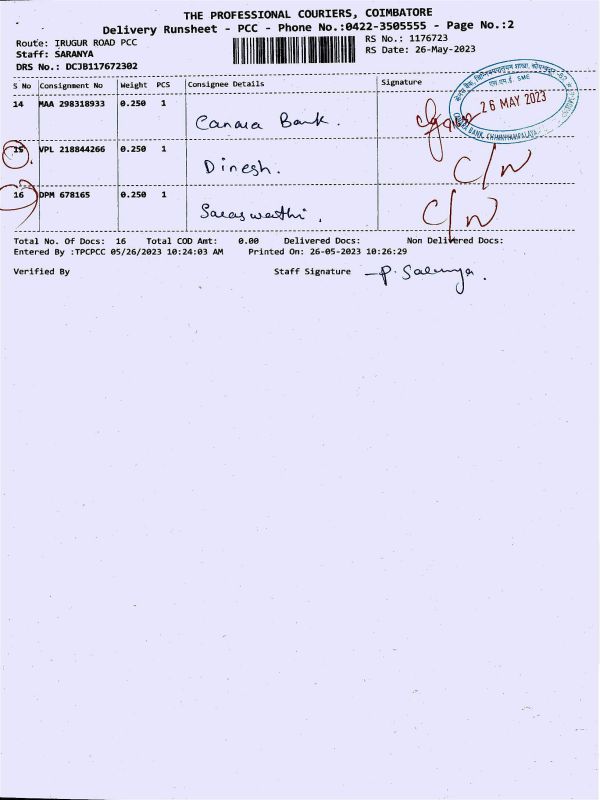 THE PROFESSIONAL COURIERS, COIMBATORE
Delivery Runsheet - PCC - Phone No.:0422-3505555 - Page No.:2
Route: IRUGUR ROAD PCC
RS No.: 1176723
Staff: SARANYA
RS Date: 26-May-2023
DRS No.: DCJB117672302
S No Consignment No Weight PCS Consignee Details Signature
14 MAA 298318933 0.250 1
Canara Bank.
26 MAY 2023
15 VPL 218844266 0.250 1
Dinesh.
C/N
16 DPM 678165 0.250 1
Saraswathi.
C/N
Total No. Of Docs: 16 Total COD Amt: 0.00 Delivered Docs: Non Delivered Docs:
Entered By :TPCPCC 05/26/2023 10:24:03 AM Printed On: 26-05-2023 10:26:29
Verified By Staff Signature P. Saranya.